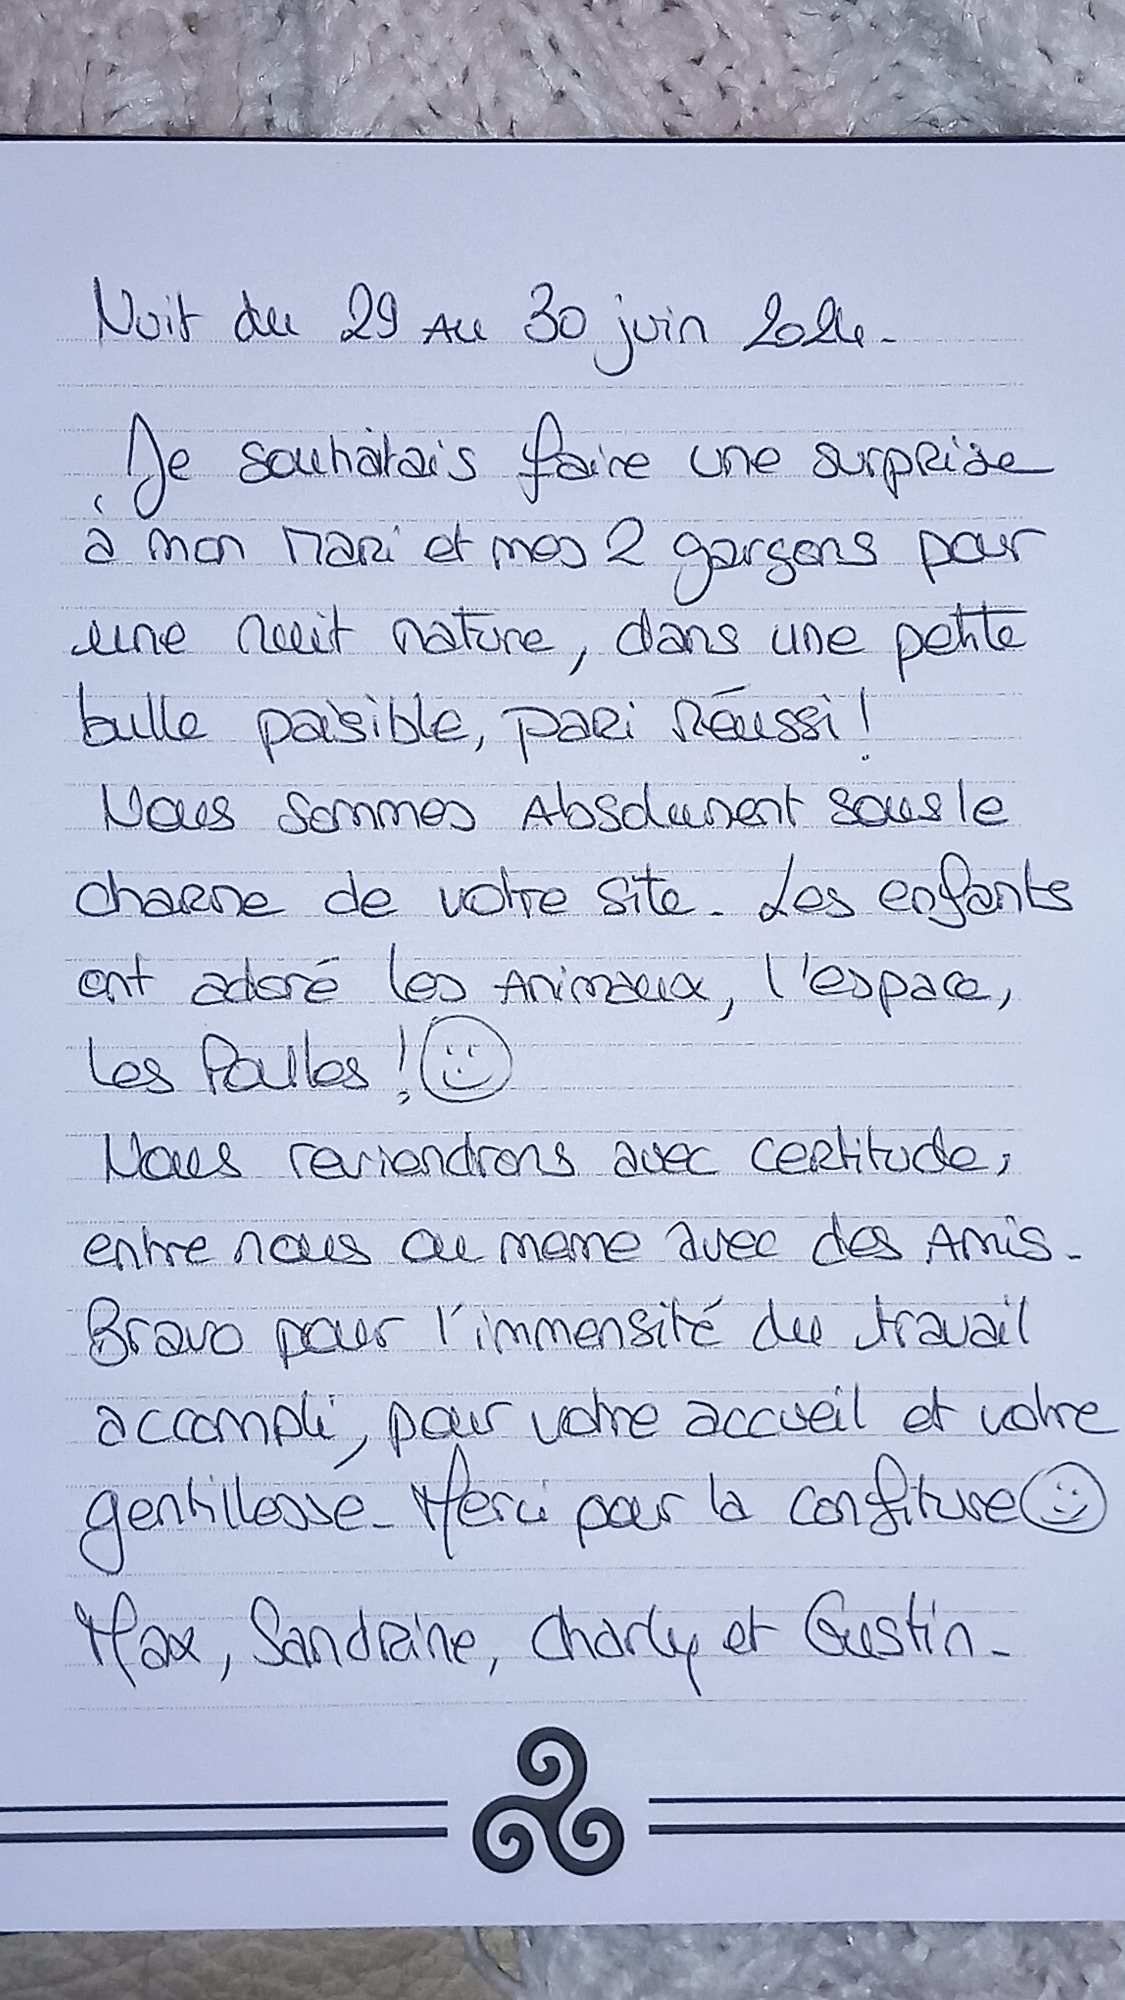 Nuit du 29 Au 30 juin 2024.
Je souhaitais faire une surprise
à mon mari et mes 2 garçons pour
une nuit nature, dans une petite
bulle paisible, pari réussi !
Nous sommes Absolument sous le
charme de votre site. Les enfants
ont adoré les Animaux, l'espace,
les Poules ! ☺
Nous reviendrons avec certitude,
entre nous ou meme avec des Amis.
Bravo pour l'immensité du travail
accompli, pour votre accueil et votre
gentillesse. Merci pour la confiture ☺
Max, Sandrine, Charly et Gustin.